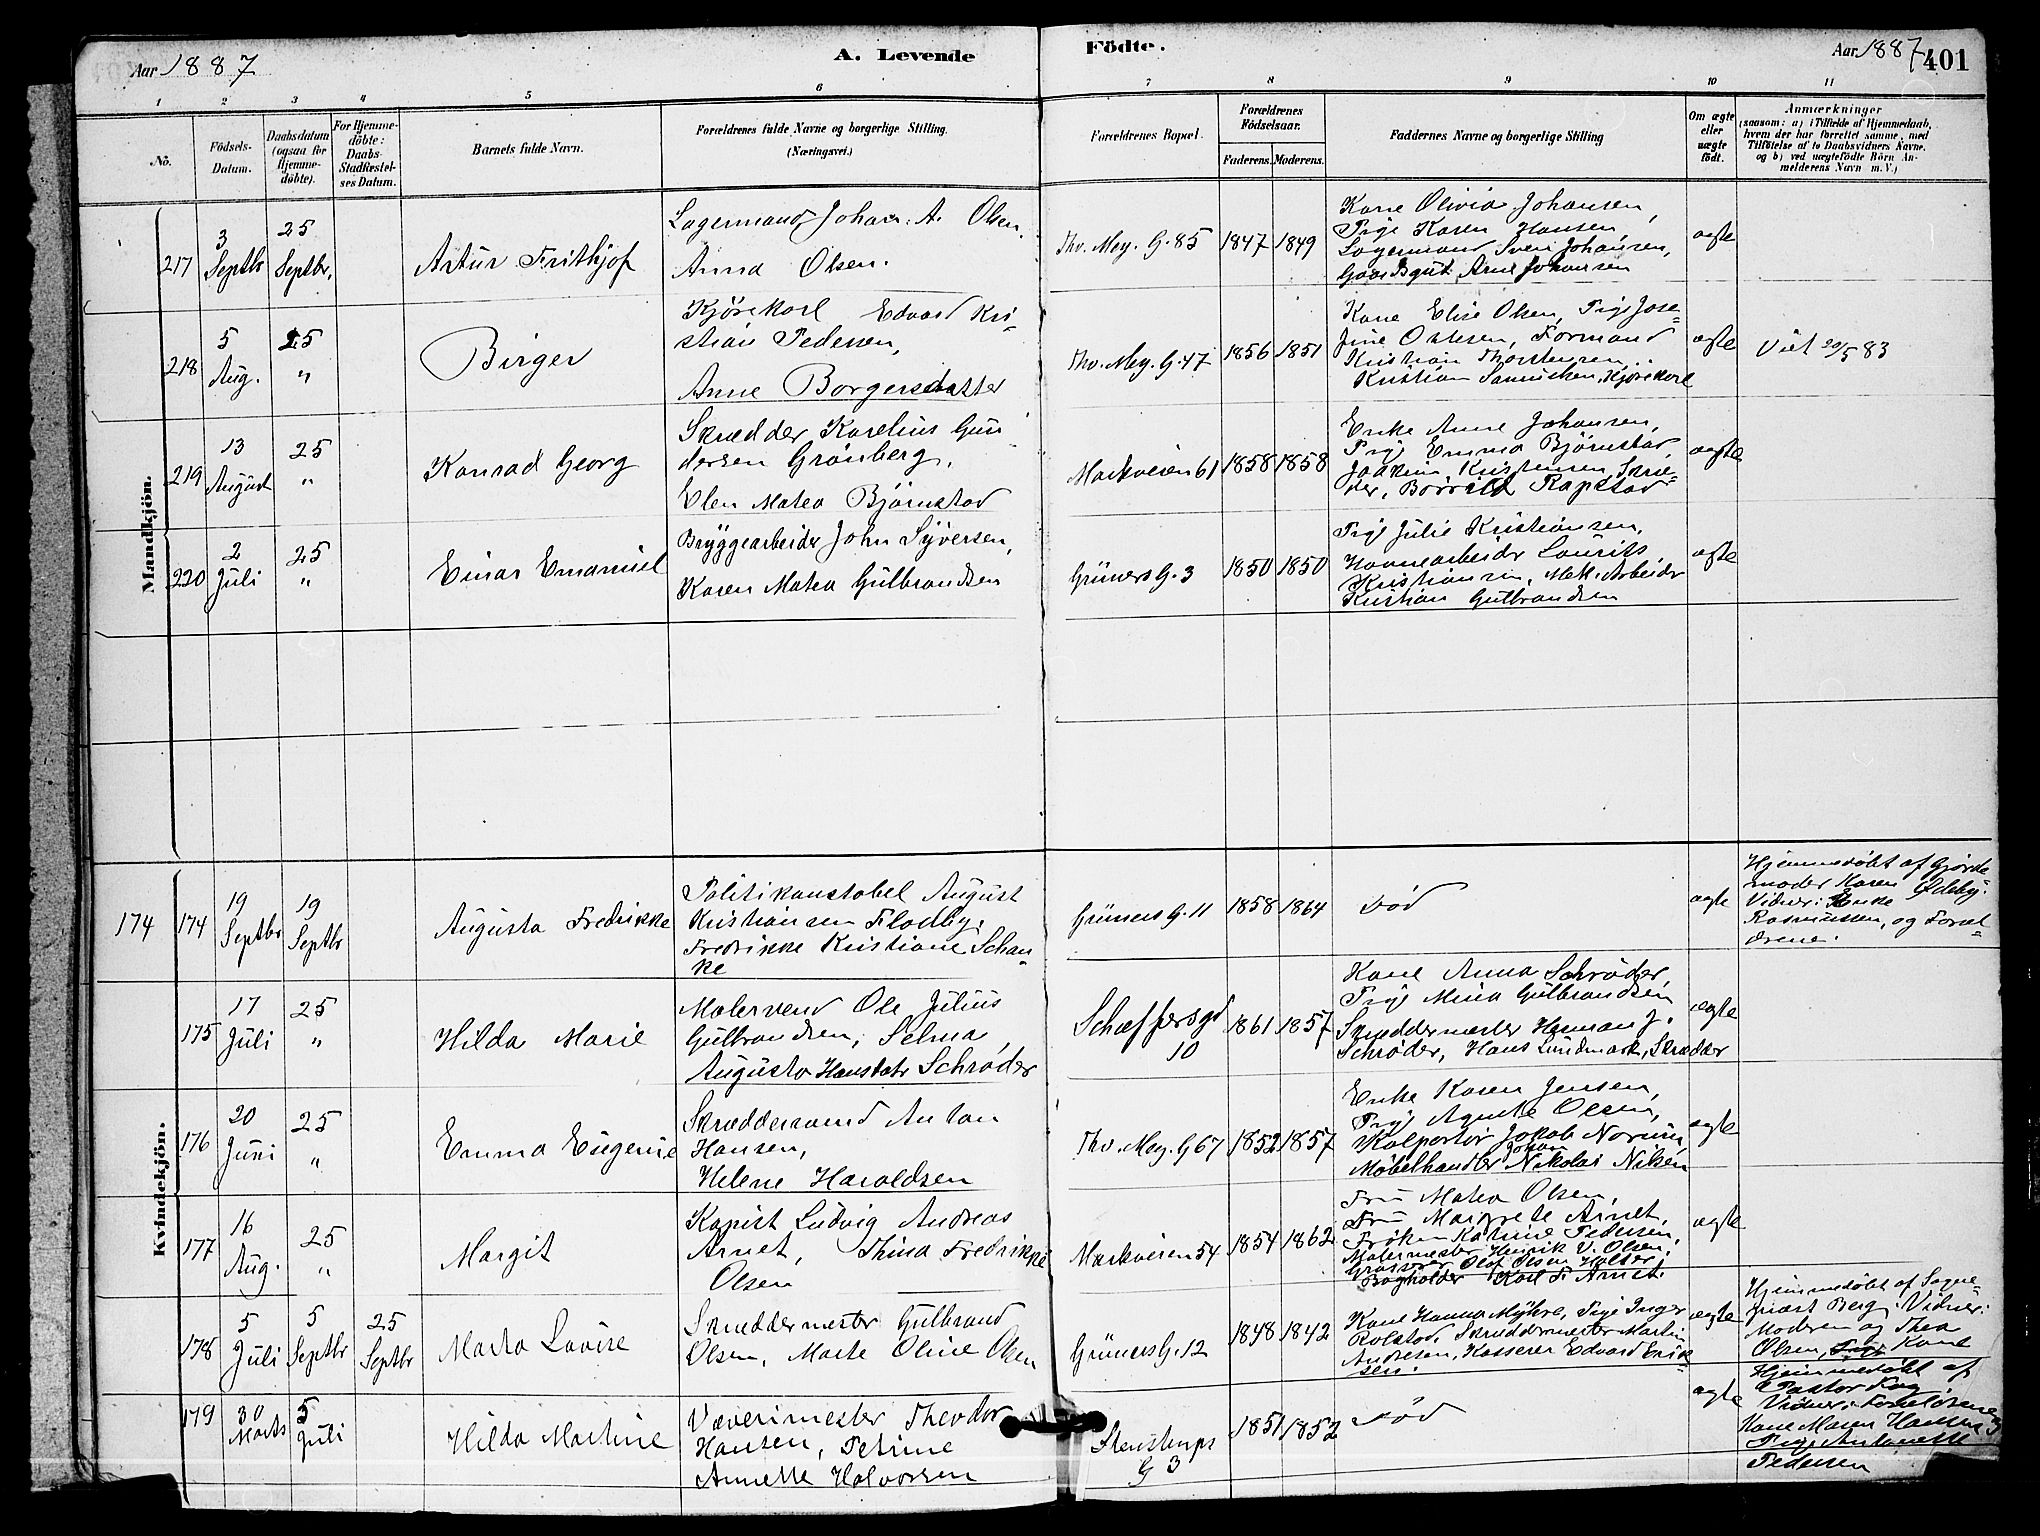 Aar 1887
A. Levende
Födte.
Aar 1887
401
1
2
3
4
5
6
7
8
9
10
11
No.
Födsels-
Datum.
Daabsdatum
(ogsaa for
Hjemme-
döbte).
For Hjemme-
döbte:
Daabs-
Stadfæstel-
ses Datum.
Barnets fulde Navn.
Forældrenes fulde Navne og borgerlige Stilling.
(Næringsvei.)
Forældrenes Bopæl.
Forældrenes
Födselsaar.
Faderens.
Moderens.
Faddernes Navne og borgerlige Stilling
Om ægte
eller
uægte
födt.
Anmærkninger
(saasom: a) i Tilfælde af Hjemmedaab,
hvem der har forrettet samme, med
Tilföielse af to Daabsvidners Navne,
og b) ved uægtefödte Börn An-
melderens Navn m. V.)
Mandkjön.
217
3
Septbr
25
Septbr,
Artur Frithjof
Lagermand Johan A. Olsen,
Anna Olsen.
Thv. Mey. G. 85
1847
1849
Kone Olivia Johansen,
Pige Karen Hansen,
Lagermand Sven Johansen,
Arne Johansen
ægte
218
5
Aug.
25
"
Birger
Kjørekarl Edvard Kri-
stian Pedersen,
Anne Borgersdatter
Thv. Mey. G. 47
1856
1851
Kone Elise Olsen, Pige Jose-
fine Olsen, Formand
Kristian Thorstensen,
Kristian Samuelsen, Kjørekarl
ægte
219
13
August
25
"
Konrad Georg
Skrædder Karelius Gun-
dersen Grønberg,
Elen Matea Bjørnstad
Markveien 61
1858
1858
Enke Anne Johansen,
Pige Emma Bjørnstad,
Joakim Kristensen, Skræd-
der, Rapstad
ægte
220
2
Juli
25
"
Einar Emanuel
Bryggearbeider John Syversen,
Karen Matea Gulbrandsen
Grüners G. 3
1850
1850
Pige Julie Kristiansen,
Havnearbeider Laurits
Kristiansen, Mek. Arbeider
Kristian Gulbrandsen
ægte
Kvindekjön.
174
174
19
Septbr
19
Septbr
Augusta Fredrikke
Politikonstabel August
Kristiansen Flodby,
Fredrikke Kristiane Schan-
ke
Grüners G. 11
1858
1864
død
ægte
Hjemmedøbt af Gjorde-
moder Karen Ødeby.
Vidner: Enke
Rasmussen, og Foræl-
drene.
175
17
Juli
25
"
Hilda Marie
Malersvend Ole Julius
Gulbrandsen, Selma
Augusta Hansdatr Schrøder
Schæffersgd
10
1861
1857
Kone Anna Schrøder,
Pige Mina Gulbrandsen
Skræddermester Herman J.
Schrøder, Hans Lundmark, Skrædder
ægte
176
20
Juni
25
"
Emma Eugenie
Skræddersvend Anton
Hansen,
Helene Haraldsen
Thv. Mey. G 67
1852
1857
Enke Karen Jensen,
Pige Agnete Olsen,
Kolportør Jakob Norum,
Johan
Møbelhandler Nikolai Nilsen
ægte
177
16
Aug.
25
"
Margit
Kopist Ludvig Andreas
Arnet, Thina Fredrikke
Olsen
Markveien 54
1854
1862
Fru Matea Olsen,
Fru Margrete Arnet,
Frøken Katrine Pedersen,
Malermester Henrik V. Olsen,
Grosserer Olof Olsen Holter,
Bogholder Karl F. Arnet.
ægte
178
5
Juli
5
Septbr
25
Septbr
Marta Lovise
Skræddermester Gulbrand
Olsen, Marte Oline Olsen
Grüners G. 12
1848
1842
Kone Hanna Myhre, Pige Inger
Rolstad, Skræddermester Martin
Andresen, Kasserer Edvard Erik-
sen.
ægte
Hjemmedøbt af Sogne-
præst Berg. Vidner:
Moderen og Thea
Olsen, Kone
179
30
Marts
5
Juli
Hilda Martine
Væverimester Theodor
Hansen, Petrine
Annette Halvorsen
Stenstrups
G 3
1851
1852
død
ægte
Hjemmedøbt af
Pastor
Vidner: Forældrene
Kone Maren Hansen,
Pige Antonette
Pedersen